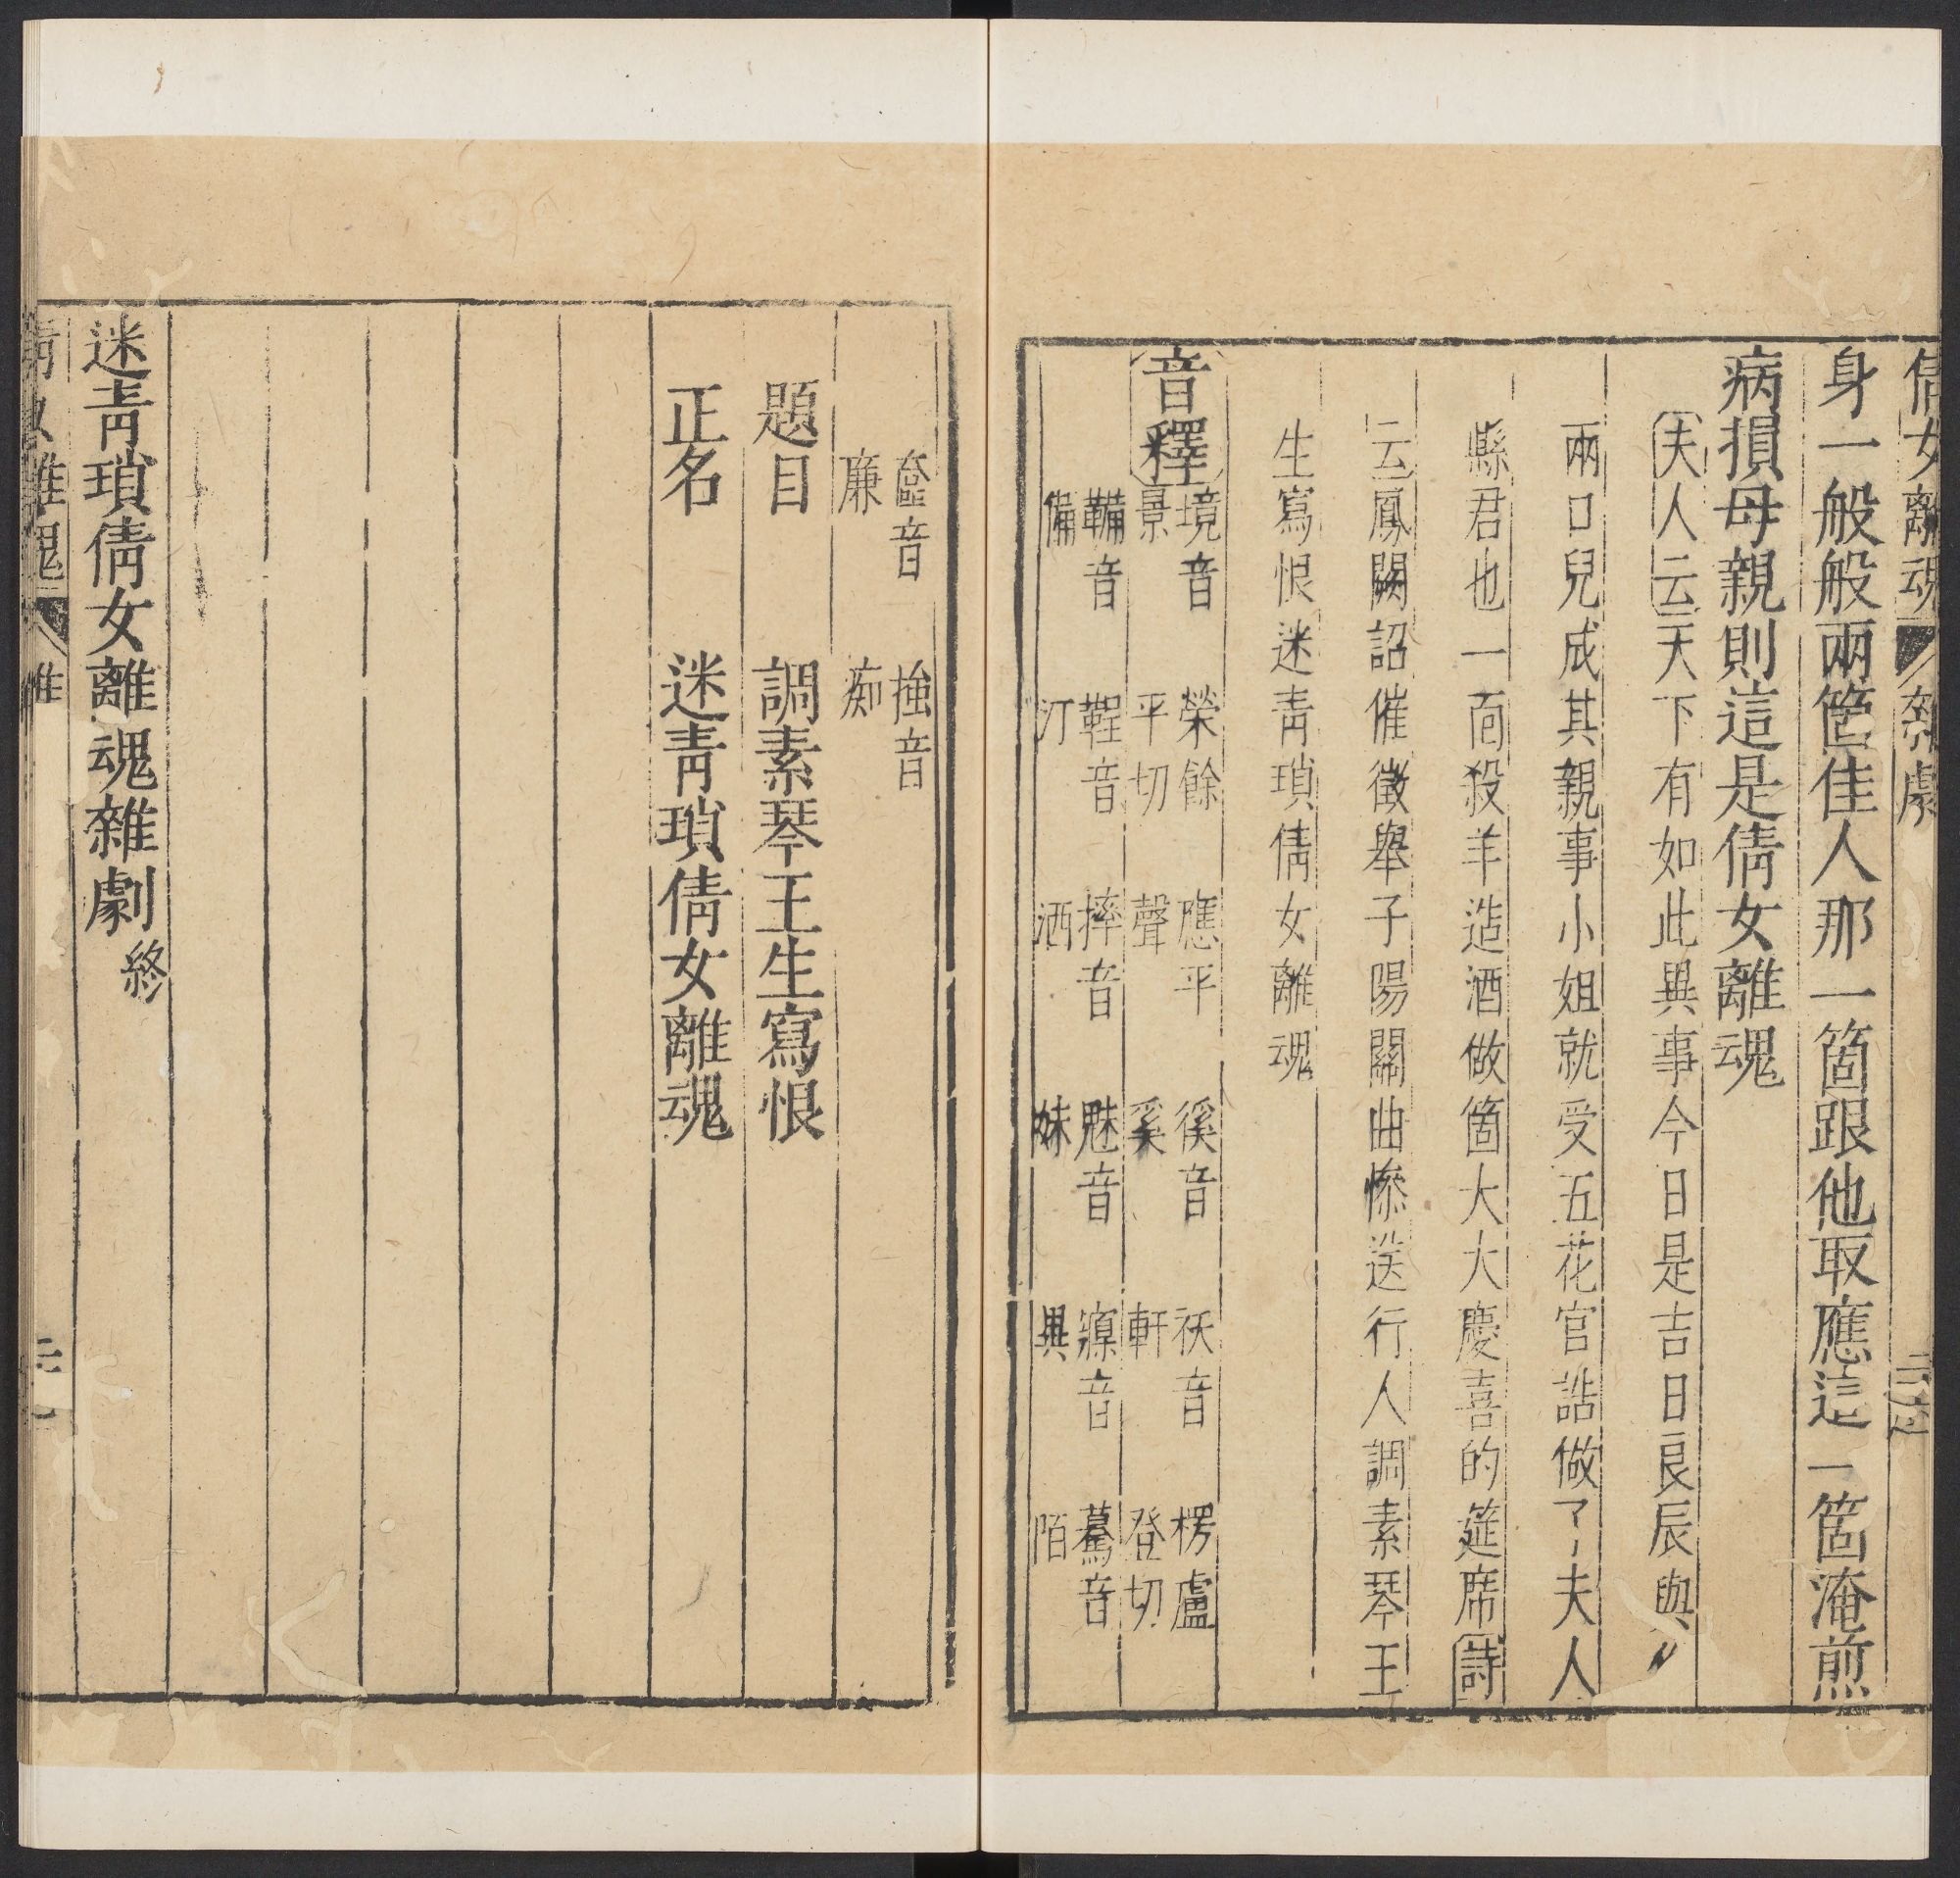 倩女離魂 雜劇
身一般般兩箇佳人那一箇跟他取應這一箇淹煎
病損母親則這是倩女離魂
夫人云天下有如此異事今日是吉日良辰與〃
兩口兒成其親事小姐就受五花官誥做了夫人
縣君也一面殺羊造酒做箇大大慶喜的筵席詩
云鳳闕詔催徵舉子陽關曲慘送行人調素琴王
生寫恨迷青瑣倩女離魂
音釋
境音景 榮餘平切 應平聲 徯音奚 祆音軒 楞盧登切
鞴音備 鞓音汀 摔音洒 魅音妹 音異 驀音陌
奩音廉 音痴
題目 調素琴王生寫恨
正名 迷青瑣倩女離魂
迷青瑣倩女離魂雜劇終